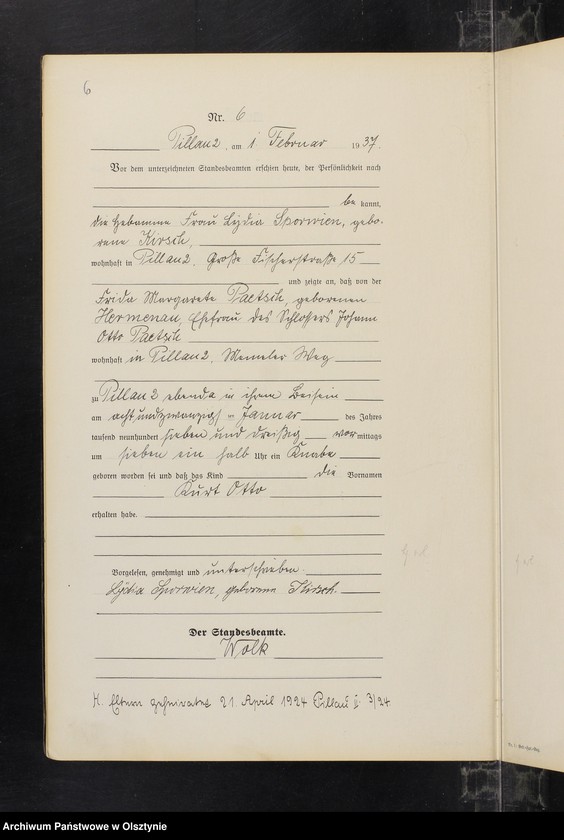 6
Nr. 6
Pillau 2, am 1 Februar 1937.
Vor dem unterzeichneten Standesbeamten erschien heute, der Persönlichkeit nach
be kannt,
die Hebamme Frau Lydia Sporwien, gebo-
rene Kirsch,
wohnhaft in Pillau 2, Große Fischerstraße 15
und zeigte an, daß von der
Frida Margarete Paetsch, geborenen
Hermenau, Ehefrau des Schlossers Johann
Otto Paetsch
wohnhaft in Pillau 2, Memeler Weg
zu Pillau 2 ebenda in ihrem Beisein
am achtundzwanzig Januar des Jahres
tausend neunhundert sieben und dreißig vor mittags
um sieben ein halb Uhr ein Knabe
geboren worden sei und daß das Kind die Vornamen
Kurt Otto
erhalten habe.
Vorgelesen, genehmigt und unterschrieben.
Lydia Sporwien, geborene Kirsch
Der Standesbeamte.
Wolk
H. Eltern geheiratet 21 April 1924 Pillau II 3/24
Archiwum Państwowe w Olsztynie